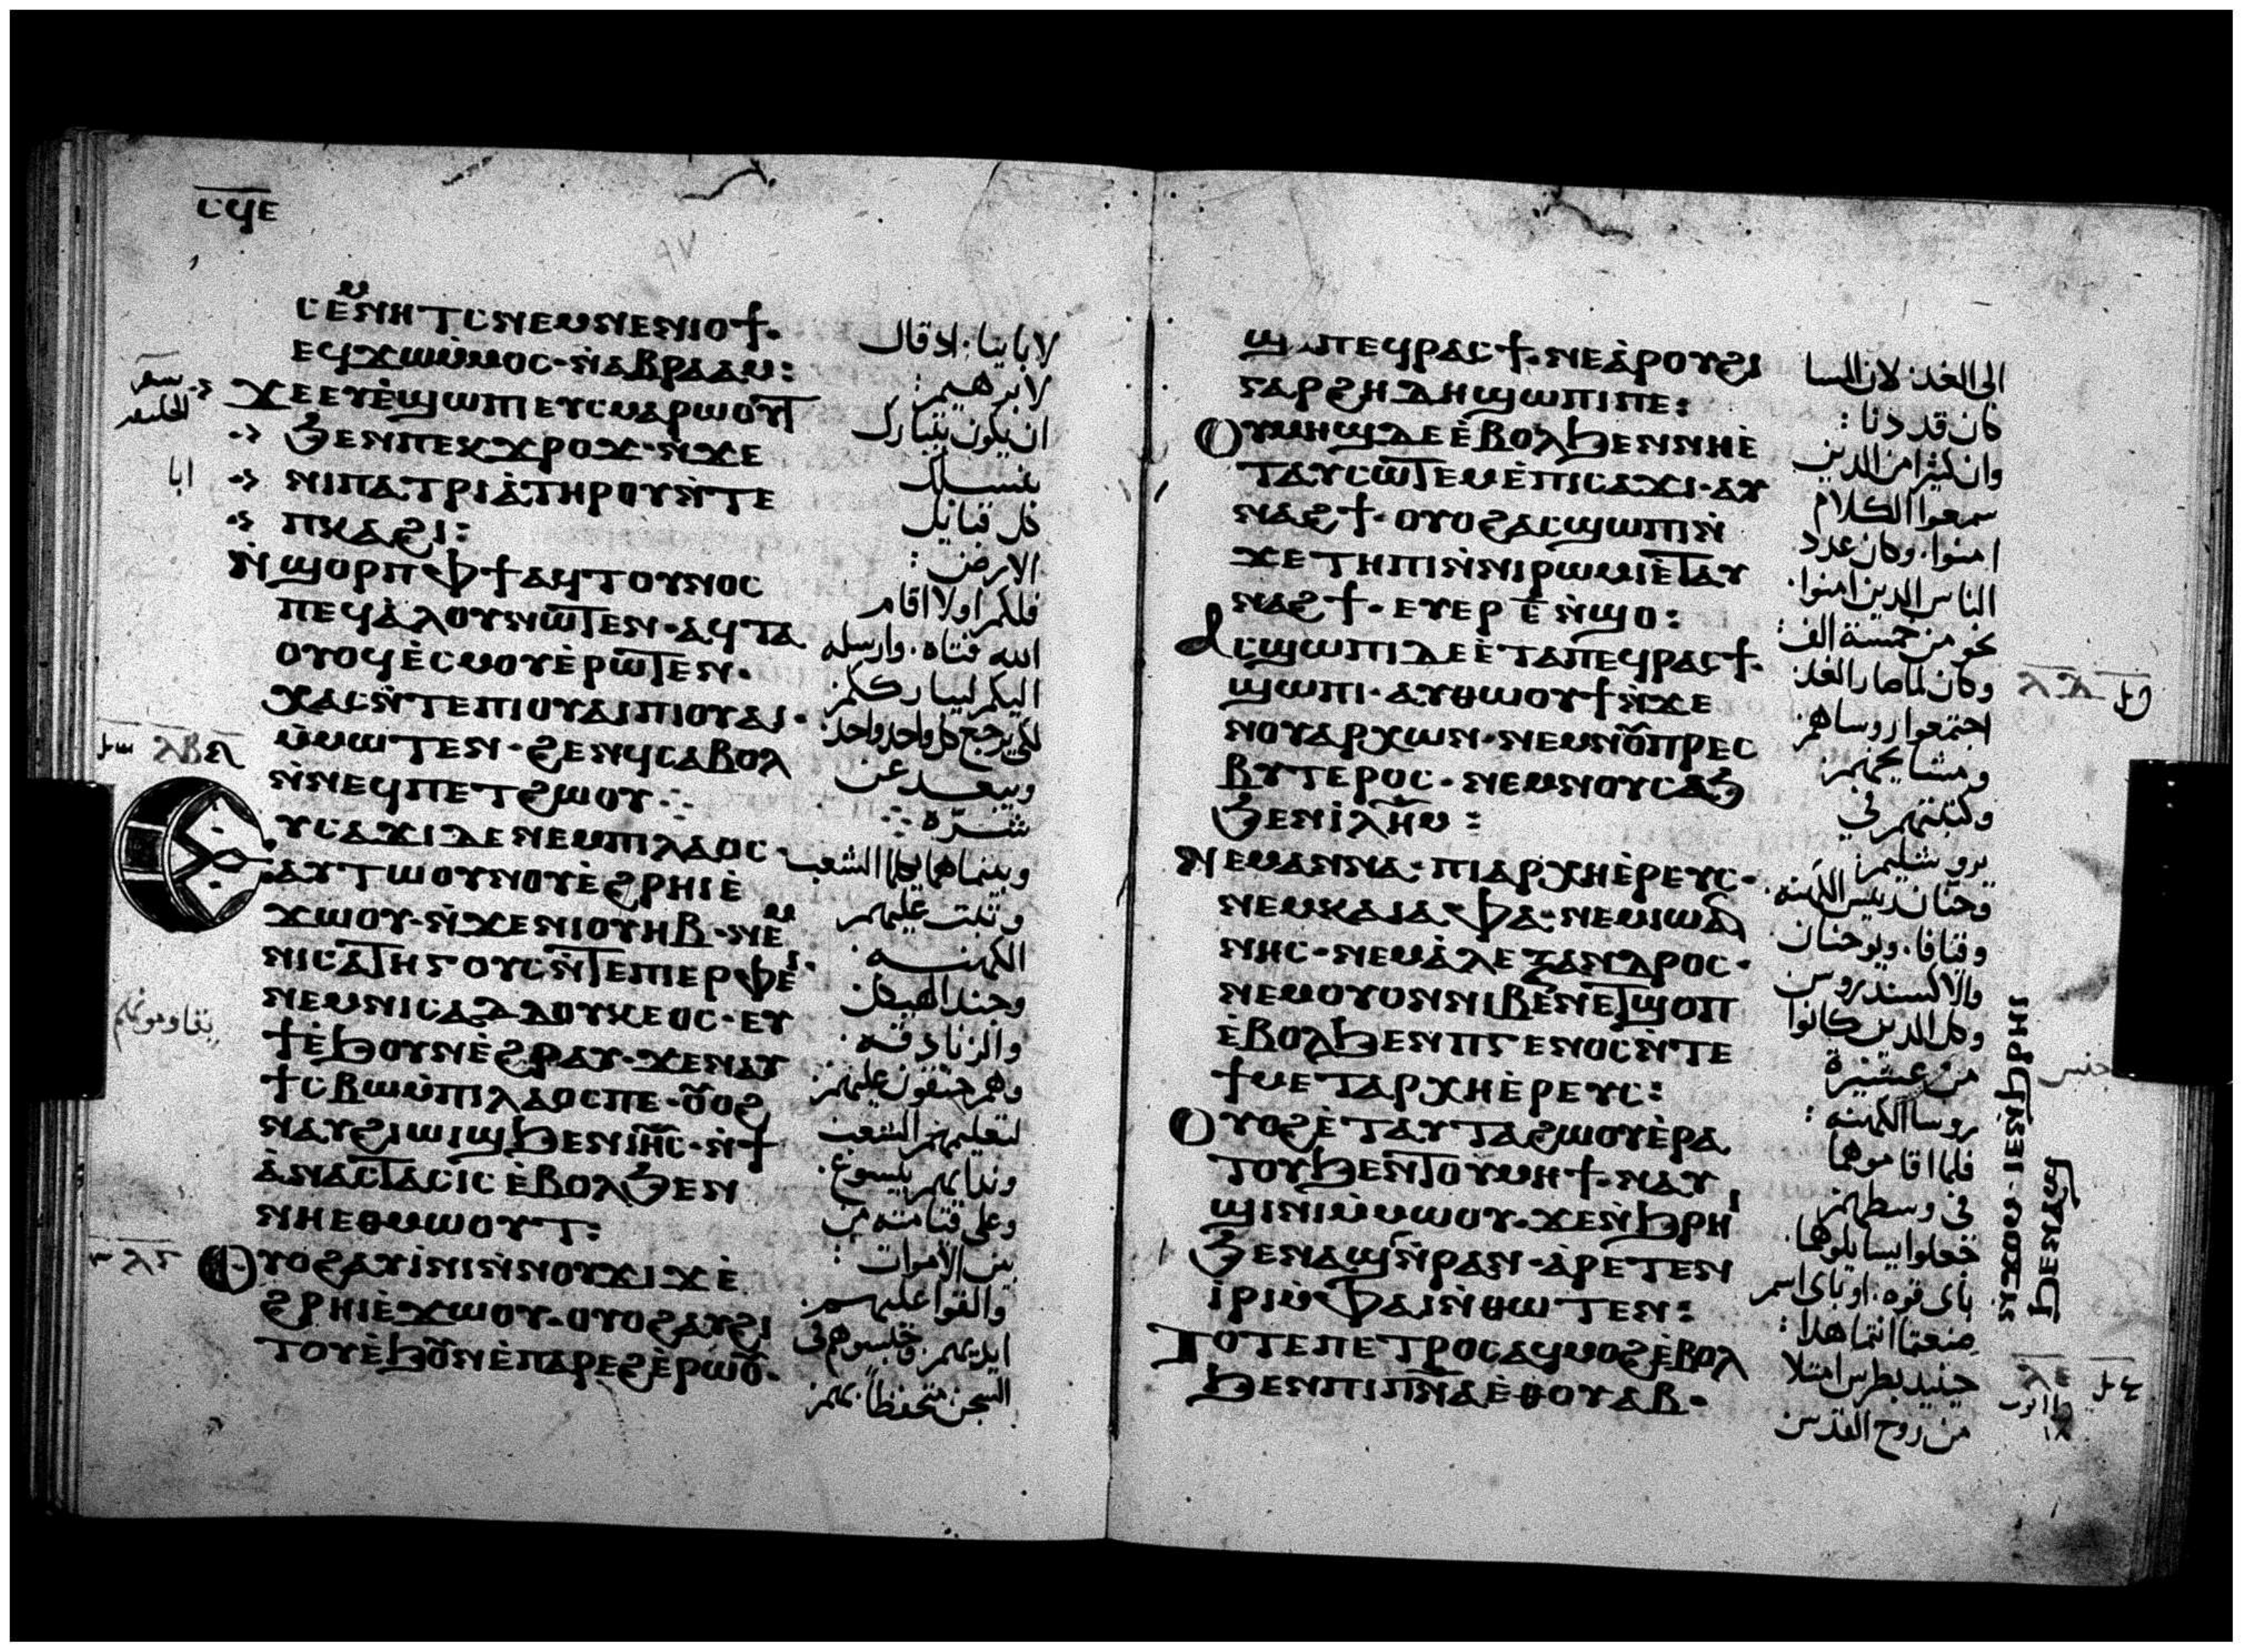 ⲥϥⲉ
ⲥⲉⲙⲛⲏⲧⲥ ⲛⲉⲙⲛⲉⲛⲓⲟϯ·
ⲉϥϫⲱⲙ̀ⲙⲟⲥ· ⲛ̀ⲁⲃⲣⲁⲁⲙ:
ϫⲉⲉⲩⲉ̀ϣⲱⲡⲓ ⲉⲩⲥⲙⲁⲣⲱⲟⲩⲧ
ϧⲉⲛⲡⲉⲕϫⲣⲟϫ· ⲛ̀ϫⲉ
ⲛⲓⲡⲁⲧⲣⲓⲁ̀ ⲧⲏⲣⲟⲩ ⲛ̀ⲧⲉ
ⲡⲕⲁϩⲓ:
ⲛ̀ϣⲟⲣⲡ ⲫϯ ⲁϥⲧⲟⲩⲛⲟⲥ
ⲡⲉϥⲁ̀ⲗⲟⲩ ⲛⲱⲧⲉⲛ· ⲁϥⲧⲁ
ⲟⲩⲟϥ ⲉ̀ⲥⲙⲟⲩ ⲉ̀ⲣⲱⲧⲉⲛ·
ϫⲁⲥ ⲛ̀ⲧⲉ ⲡⲓⲟⲩⲁⲓ ⲡⲓⲟⲩⲁⲓ·
ⲙ̀ⲙⲱⲧⲉⲛ· ϩⲉⲛϥ ⲥⲁⲃⲟⲗ
ⲛ̀ⲛⲉϥⲡⲉⲧϩⲱⲟⲩ
ⲉⲩⲥⲁϫⲓ ⲇⲉ ⲛⲉⲙⲡⲓⲗⲁⲟⲥ·
ⲁⲩⲧⲱⲟⲩⲛⲟⲩ ⲉ̀ϩⲣⲏⲓ ⲉ̀
ϫⲱⲟⲩ· ⲛ̀ϫⲉ ⲛⲓⲟⲩⲏⲃ· ⲛⲉⲙ
ⲛⲓⲥⲁⲧⲏⲅⲟⲩⲥ ⲛ̀ⲧⲉ ⲡⲓⲉⲣⲫⲉⲓ·
ⲛⲉⲙⲛⲓⲥⲁⲇⲇⲟⲩⲕⲉⲟⲥ· ⲉⲩ
ϯ ⲉ̀ϧⲟⲩⲛ ⲉ̀ϩⲣⲁⲩ· ϫⲉ ⲛⲁⲩ
ϯⲥⲃⲱ ⲙ̀ⲡⲓⲗⲁⲟⲥ ⲡⲉ· ⲟⲩⲟϩ
ⲛⲁⲩϩⲓⲱⲓϣ ϧⲉⲛ ⲓⲏⲥ· ⲛ̀ϯ
ⲁ̀ⲛⲁⲥⲧⲁⲥⲓⲥ ⲉ̀ⲃⲟⲗ ϧⲉⲛ
ⲛⲏⲉⲑⲙⲱⲟⲩⲧ:
ⲟⲩⲟϩ ⲁⲩⲓ̀ⲛⲓ ⲛ̀ⲛⲟⲩϫⲓϫ ⲉ̀
ϩⲣⲏⲓ ⲉ̀ϫⲱⲟⲩ· ⲟⲩⲟϩ ⲁⲩϩⲓ
ⲧⲟⲩ ⲉ̀ϧⲟⲩⲛ ⲉ̀ⲡⲁⲣⲉϩ ⲉ̀ⲣⲱⲟⲩ·
لابائنا· اذ قال
لابرهيم:
ان يكون يتبارك
بنسلك
كل قبائل
الارض:
فلكم اولا اقام
الله فتاه· وارسله
اليكم ليبارككم
لكي يرجع كل واحد واحد
ويبعد عن
شره
وبينما هما يكلما الشعب
وثبت عليهم
الكهنه·
وجند الهيكل
والزنادقه·
وهم حنقون عليهم
لتعليمهم الشعب
وندايهم بيسوع·
وعلى قيامته من
بين الاموات:
والقوا عليهم
ايديهم· فحبسوهم في
السجن متحفظا بهم
سفر
الخليقه
ابا
ⲗⲃ
ⲗⲅ
ϣ ⲡⲉϥⲣⲁⲥϯ· ⲛⲉ ⲁ̀ⲣⲟⲩϩⲓ
ⲅⲁⲣ ϩⲏⲇⲏ ϣⲱⲡⲓ ⲡⲉ:
ⲟⲩⲙⲏϣ ⲇⲉ ⲉ̀ⲃⲟⲗ ϧⲉⲛ ⲛⲏ ⲉ̀
ⲧⲁⲩⲥⲱⲧⲉⲙ ⲉ̀ⲡⲓⲥⲁϫⲓ· ⲁⲩ
ⲛⲁϩϯ· ⲟⲩⲟϩ ⲁⲥϣⲱⲡⲓ ⲛ̀
ϫⲉ ⲧⲏⲡⲓ ⲛ̀ⲛⲓⲣⲱⲙⲓ ⲉ̀ⲧⲁⲩ
ⲛⲁϩϯ· ⲉⲩⲉⲣ ⲉ̅ ⲛ̀ϣⲟ:
ⲁⲥϣⲱⲡⲓ ⲇⲉ ⲉ̀ⲧⲁ ⲡⲉϥⲣⲁⲥϯ·
ϣⲱⲡⲓ· ⲁⲩⲑⲱⲟⲩϯ ⲛ̀ϫⲉ
ⲛⲟⲩⲁⲣⲭⲱⲛ· ⲛⲉⲙⲛⲟⲩⲡⲣⲉⲥ
ⲃⲩⲧⲉⲣⲟⲥ· ⲛⲉⲙⲛⲟⲩⲥⲁϧ
ϧⲉⲛ ⲓ̀ⲗⲏⲙ:
ⲛⲉⲙ ⲁⲛⲛⲁ· ⲡⲓⲁⲣⲭⲏⲉ̀ⲣⲉⲩⲥ·
ⲛⲉⲙ ⲕⲁⲓⲁⲫⲁ· ⲛⲉⲙ ⲓⲱⲁ
ⲛⲏⲥ· ⲛⲉⲙ ⲁ̀ⲗⲉⲝⲁⲛⲇⲣⲟⲥ·
ⲛⲉⲙ ⲟⲩⲟⲛ ⲛⲓⲃⲉⲛ ⲉⲧϣⲟⲡ
ⲉ̀ⲃⲟⲗ ϧⲉⲛ ⲡⲅⲉⲛⲟⲥ ⲛ̀ⲧⲉ
ϯⲙⲉⲧⲁⲣⲭⲏⲉ̀ⲣⲉⲩⲥ:
ⲟⲩⲟϩ ⲉ̀ⲧⲁⲩⲧⲁϩⲱⲟⲩ ⲉ̀ⲣⲁ
ⲧⲟⲩ ϧⲉⲛ ⲧⲟⲩⲙⲏϯ· ⲛⲁⲩ
ϣⲓⲛⲓ ⲙ̀ⲙⲱⲟⲩ· ϫⲉ ⲛ̀ϧⲣⲏⲓ
ϧⲉⲛ ⲁϣ ⲛ̀ⲣⲁⲛ· ⲁ̀ⲣⲉⲧⲉⲛ
ⲓ̀ⲣⲓ ⲙ̀ⲫⲁⲓ ⲛ̀ⲑⲱⲧⲉⲛ:
ⲧⲟⲧⲉ ⲡⲉⲧⲣⲟⲥ ⲁϥⲙⲟϩ ⲉ̀ⲃⲟⲗ
ϧⲉⲛ ⲡⲓⲡⲛⲁ ⲉⲑⲟⲩⲁⲃ·
الى الغد· لان المسا
كان قد دنا:
وان كثيرا من الذين
سمعوا الكلام
امنوا· وكان عدد
الناس الذين امنوا·
نحو من خمسة الف:
وكان لما صار الغد
اجتمعوا روساهم
ومشايخهم
وكتبتهم في
يروشليم
وحنان رئيس الكهنه·
وقيافا· ويوحنان
والاكسندروس
وكل الذين كانوا
من عشيرة
روسا الكهنه:
فلما اقاموهما
في وسطهم
جعلوا يسايلوهما·
باى قوه· او باى اسم
صنعتما انتما هذا:
حينيذ بطرس امتلا
من روح القدس
ⲗⲇ
ⲛ̀ϫⲟⲙ· ⲓⲉ ⲛ̀ϧⲣⲏⲓ
ϧⲉⲛ ⲁϣ
جنس
ⲗⲉ